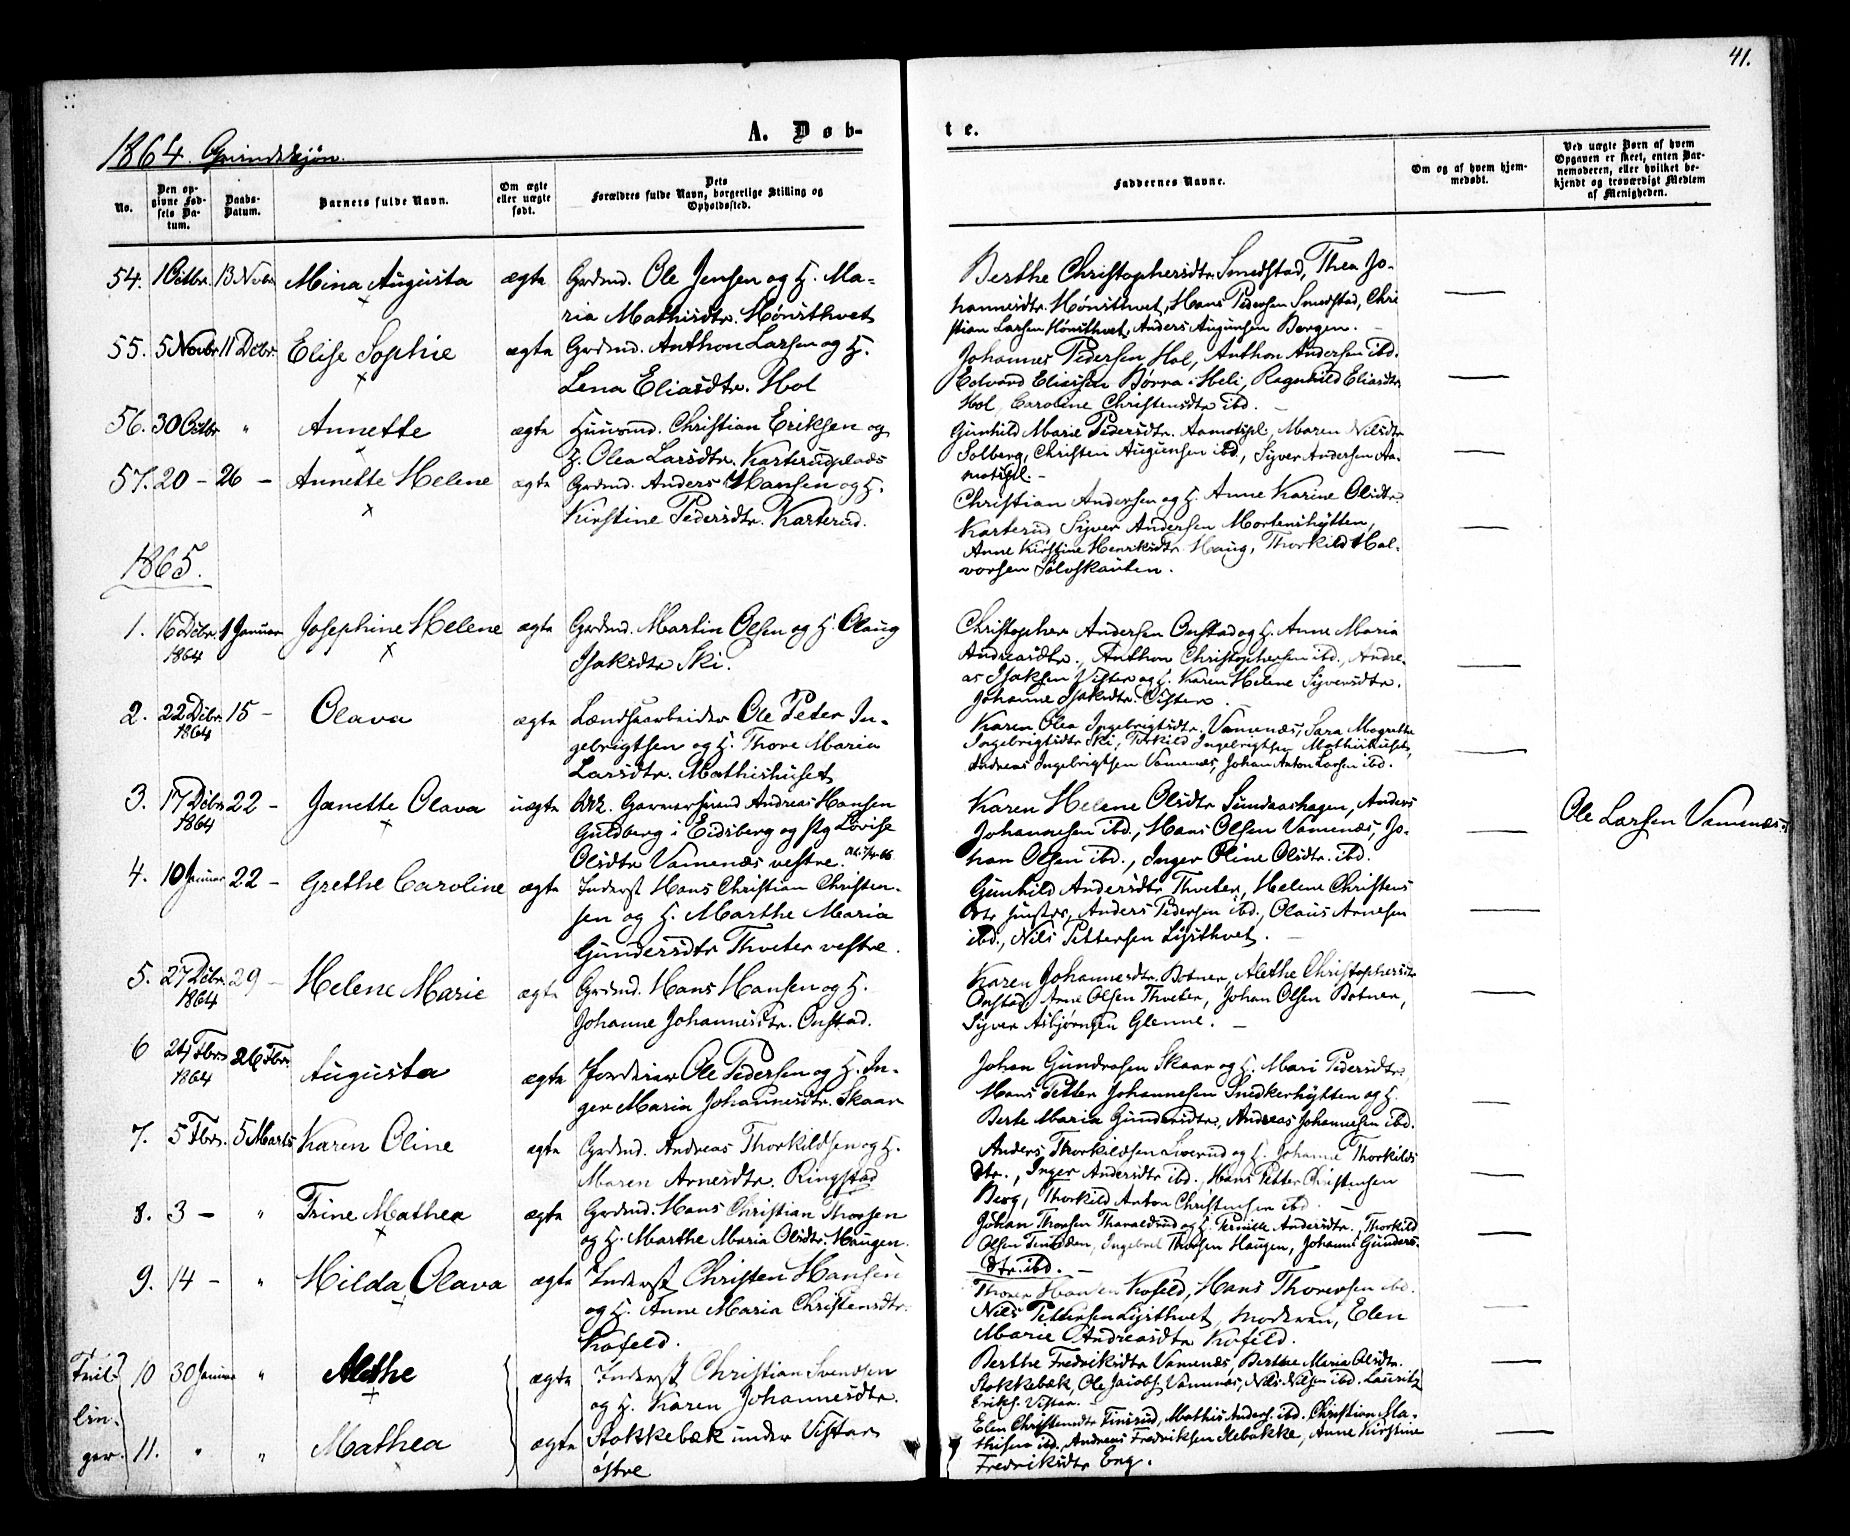 41.
A. Døb-
te.
1864. Qvindekjøn.
No.
Den op-
givne Fød-
sels Da-
tum.
Daabs-
Datum.
Barnets fulde Navn.
Om ægte
eller uægte
født.
Dets
Forældres fulde Navn, borgerlige Stilling og
Opholdssted.
Faddernes Navne.
Om og af hvem hjem-
medøbt.
Ved uægte Børn af hvem
Opgaven er skeet, enten Bar-
nemoderen, eller hvilket be-
kjendt og troværdigt Medlem
af Menigheden.
54. 1 Octbr. 13 Novbr Mina Augusta ægte Grdmd. Ole Jensen og H. Ma-
ria Mathisdtr. Mønsthvet
Berthe Christophersdtr. Smedstad, Thea Jo-
hannesdtr. Mønsthvet, Hans Pedersen Smedstad, Chri
stian Larsen Mønsthvet, Anders Augunsen Borgen. —
55. 5 Novbr 11 Decbr. Elise Sophie ægte Grdmd. Anthon Larsen og H.
Lena Eliasdtr. Hol
Johannes Pedersen Hol, Anthon Andersen ibd.
Edvard Eliassen Børra i Heli, Ragnhild Eliasdtr
Hol, Caroline Christensdtr ibd. —
56. 30 Octbr " Annette ægte Huusmd. Christian Eriksen og
H. Olea Larsdtr. Karterudplads
Gunhild Marie Pedersdtr. Aamotspl, Maren Nilsdtr
Solberg, Christen Augunsen ibd., Syver Andersen Aa-
motspl. —
57. 20 — 26 — Annette Helene ægte Grdmd. Anders Hansen og H.
Kirstine Pedersdtr. Karterud.
Christian Andersen og H. Anne Karine Olsdtr
Karterud Syver Andersen Mortenshytten,
Anne Kirstine Henriksdtr. Haug, Thorkild Hal-
vorsen Sølvskauten.
1865.
1. 16 Decbr. 1864 1 Januar Josephine Helene ægte Grdmd. Martin Olsen og H. Olaug
Isaksdtr Ski.
Christopher Andersen Onstad og H. Anne Maria
Andreasdtr., Anthon Christophersen ibd., Andre-
as Isaksen Vister og H. Karen Helene Syversdtr.
Johanne Isaksdtr. Vister.
2. 22 Decbr. 1864 15 — Olava ægte Lændsarbeider Ole Peter In-
gebrigtsen og H. Thore Maria
Larsdtr. Mathishuset
Karen Olea Ingebrigtsdtr. Vamenæs, Sara Magrethe
Ingebrigtsdtr Ski, Torkild Ingebrigtsen Mathishuset,
Andreas Ingebrigtsen Vamenæs, Johan Anton Larsen ibd.
3. 17 Decbr 1864 22 — Janette Olava uægte Ukl. Garversvend Andreas Hansen
Guldberg i Eidsberg og Pg Lovise
Olsdtr Vamenæs vestre.
Karen Helene Olsdtr Sundaashagen, Anders
Johannesen ibd., Hans Olsen Vamenæs, Jo-
han Olsen ibd., Inger Oline Olsdtr. ibd.
Ole Larsen Vamenæs.
4. 10 Januar 22 — Grethe Caroline ægte Inderst Hans Christian Christen-
sen og H. Marthe Maria
Gundersdtr Thveter vestre.
Gunhild Andersdtr Thveter, Helene Christens
dtr, Anders Pedersen ibd., Claus Arnesen
ibd., Nils Pettersen Lysthvet. —
5. 27 Decbr. 1864 29 — Helene Marie ægte Grdmd. Hans Hansen og H.
Johanne Johannesdtr. Onstad.
Karen Johannesdtr. Botner, Alethe Christophersdtr
Onstad, Arne Olsen Thveter, Johan Olsen Botner,
Syver Asbjørnsen Glenne. —
6 24 Fbr. 1864 26 Fbr. Augusta ægte Forderar Ole Pedersen og H. In-
ger Maria Johannesdtr. Skaar
Johan Gundersen Skaar og H. Mari Pedersdtr.,
Hans Petter Johannesen Snedkerhytten og H.
Berte Maria Gundersdtr., Andreas Johannesen ibd.
7. 5 Fbr. 5 Marts Karen Oline ægte Grdmd. Andreas Thorkildsen og H.
Maren Arnesdtr. Ringstad
Anders Thorkildsen og H. Johanne Thorkilds
dtr., Inger Andersdtr ibd., Hans Petter Christensen
Berg, Thorkild Anton Christensen ibd. —
8. 3 — " Trine Mathea ægte Grdmd. Hans Christian Thorsen
og H. Marthe Maria Olsdtr. Haugen.
Johan Thorsen Tharaldrud og H. Pernille Andersdtr., Thorkild
Olsen, Ingebret Thorsen Haugen, Johanne Gunders-
dtr. ibd. —
9. 14 — " Hilda Olava ægte Inderst Christen Hansen
og H. Anne Maria Christensdtr.
Kofeld.
Thorer Hansen Kofeld, Hans Thoresen ibd.
Nils Pettersen Lysthvet, Moderen, Elen
Marie Andreasdtr Kofeld.
Tvil-
lin-
ger.
10 30 Januar " Alethe ægte Inderst Christian Svendsen
og H. Karen Johannesdtr.
Berthe Fredriksdtr Vamenæs, Berthe Maria Olsdtr.
Stokkebæk, Ole Jacobs. Vamenæs, Nils Nilsen ibd. Lauritz
Eriks. Vister. —
11. " " Mathea ægte Stokkebæk under Vister
østre
Elen Christensdtr Finsrud, Mathis Anders. ibd. Christian Ma-
thisen ibd., Andreas Fredriksen Ilebakke, Anne Kirstine
Fredriksdtr Eng.